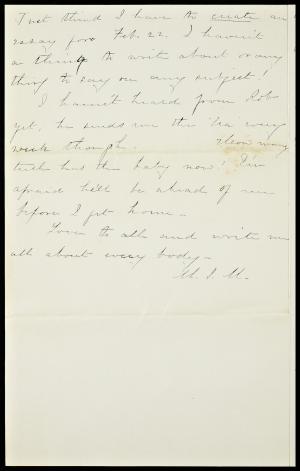 Just think I have to create an
essay for Feb. 22. I haven't
a thing to write about or any
thing to say on any subject!
I haven't heard from Rob
yet, he sends me the every
week though. many
teeth has the baby now? I'm
afraid he'll be ahead of me
before I get home.
Love to all and write me
all about every body.
M. I. M.